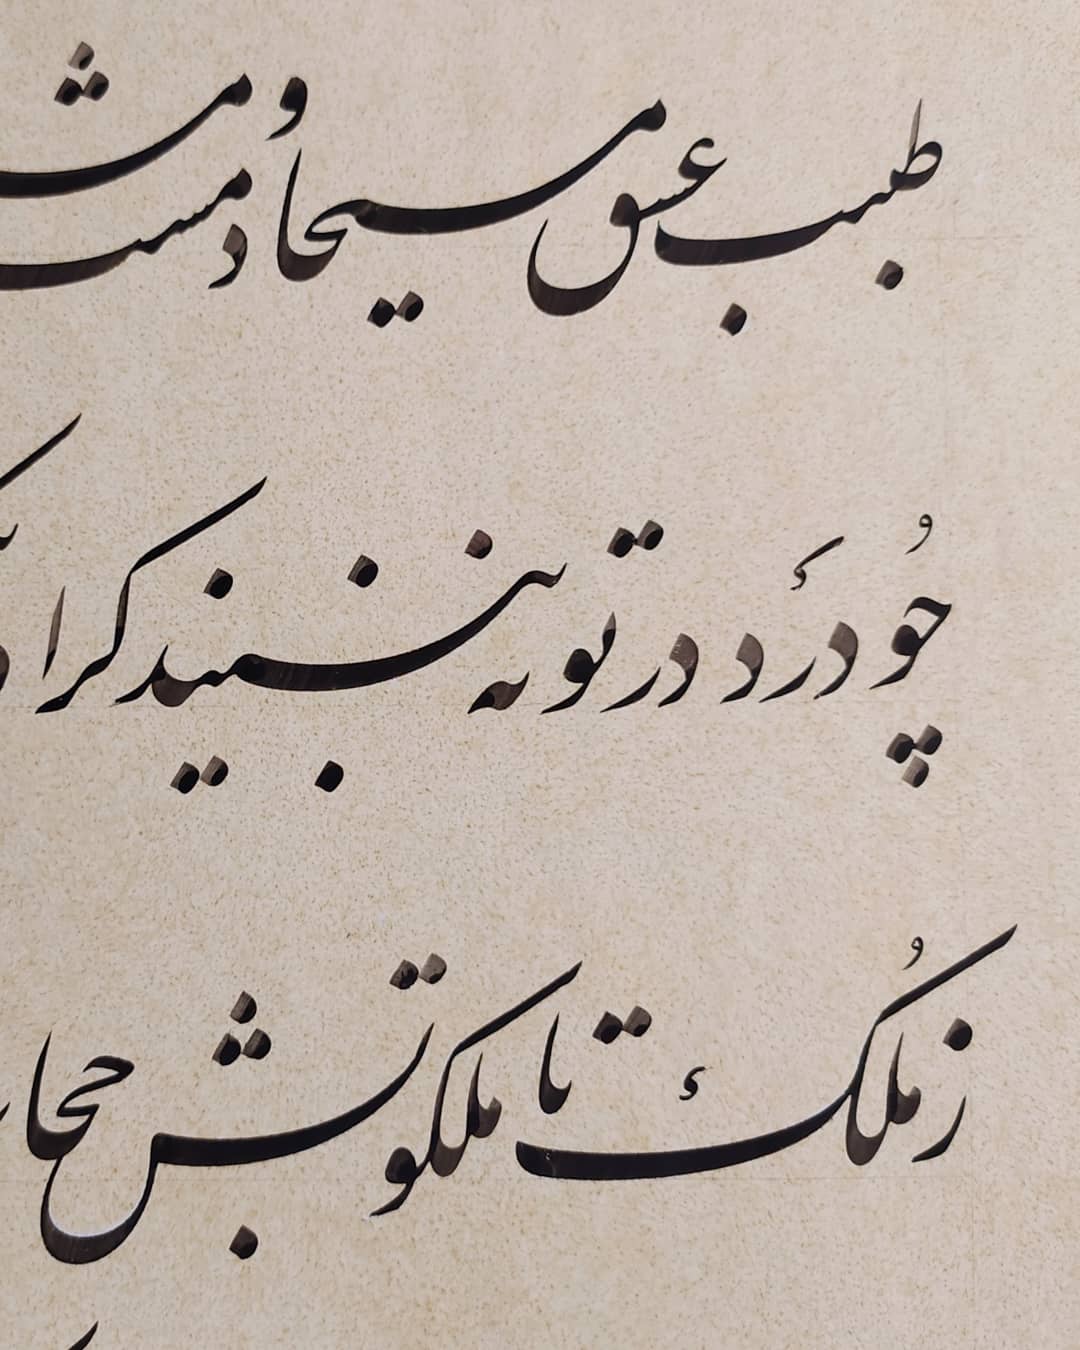 طبیب عشق مسیحا دمست و مش
چو درد در تو نبیند که را د
ز ملک تا ملکوتش حجا